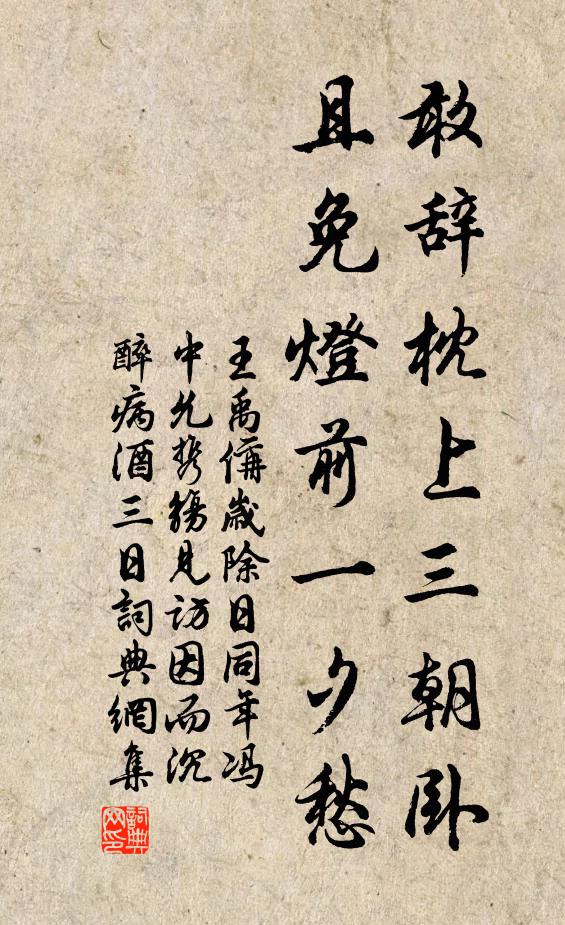 敢辞枕上三朝卧
且免燈前一夕愁
王禹偁歲除日同年冯
中允携觴見访因而沉
醉病酒三日詞典網集
詞典
网印